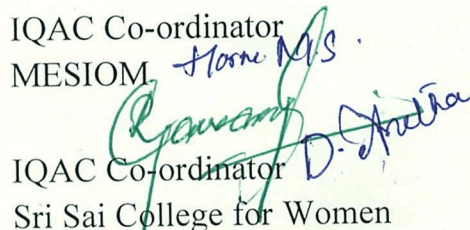 IQAC Co-ordinator
MESIOM
M.S.
IQAC Co-ordinator
D.
Sri Sai College for Women